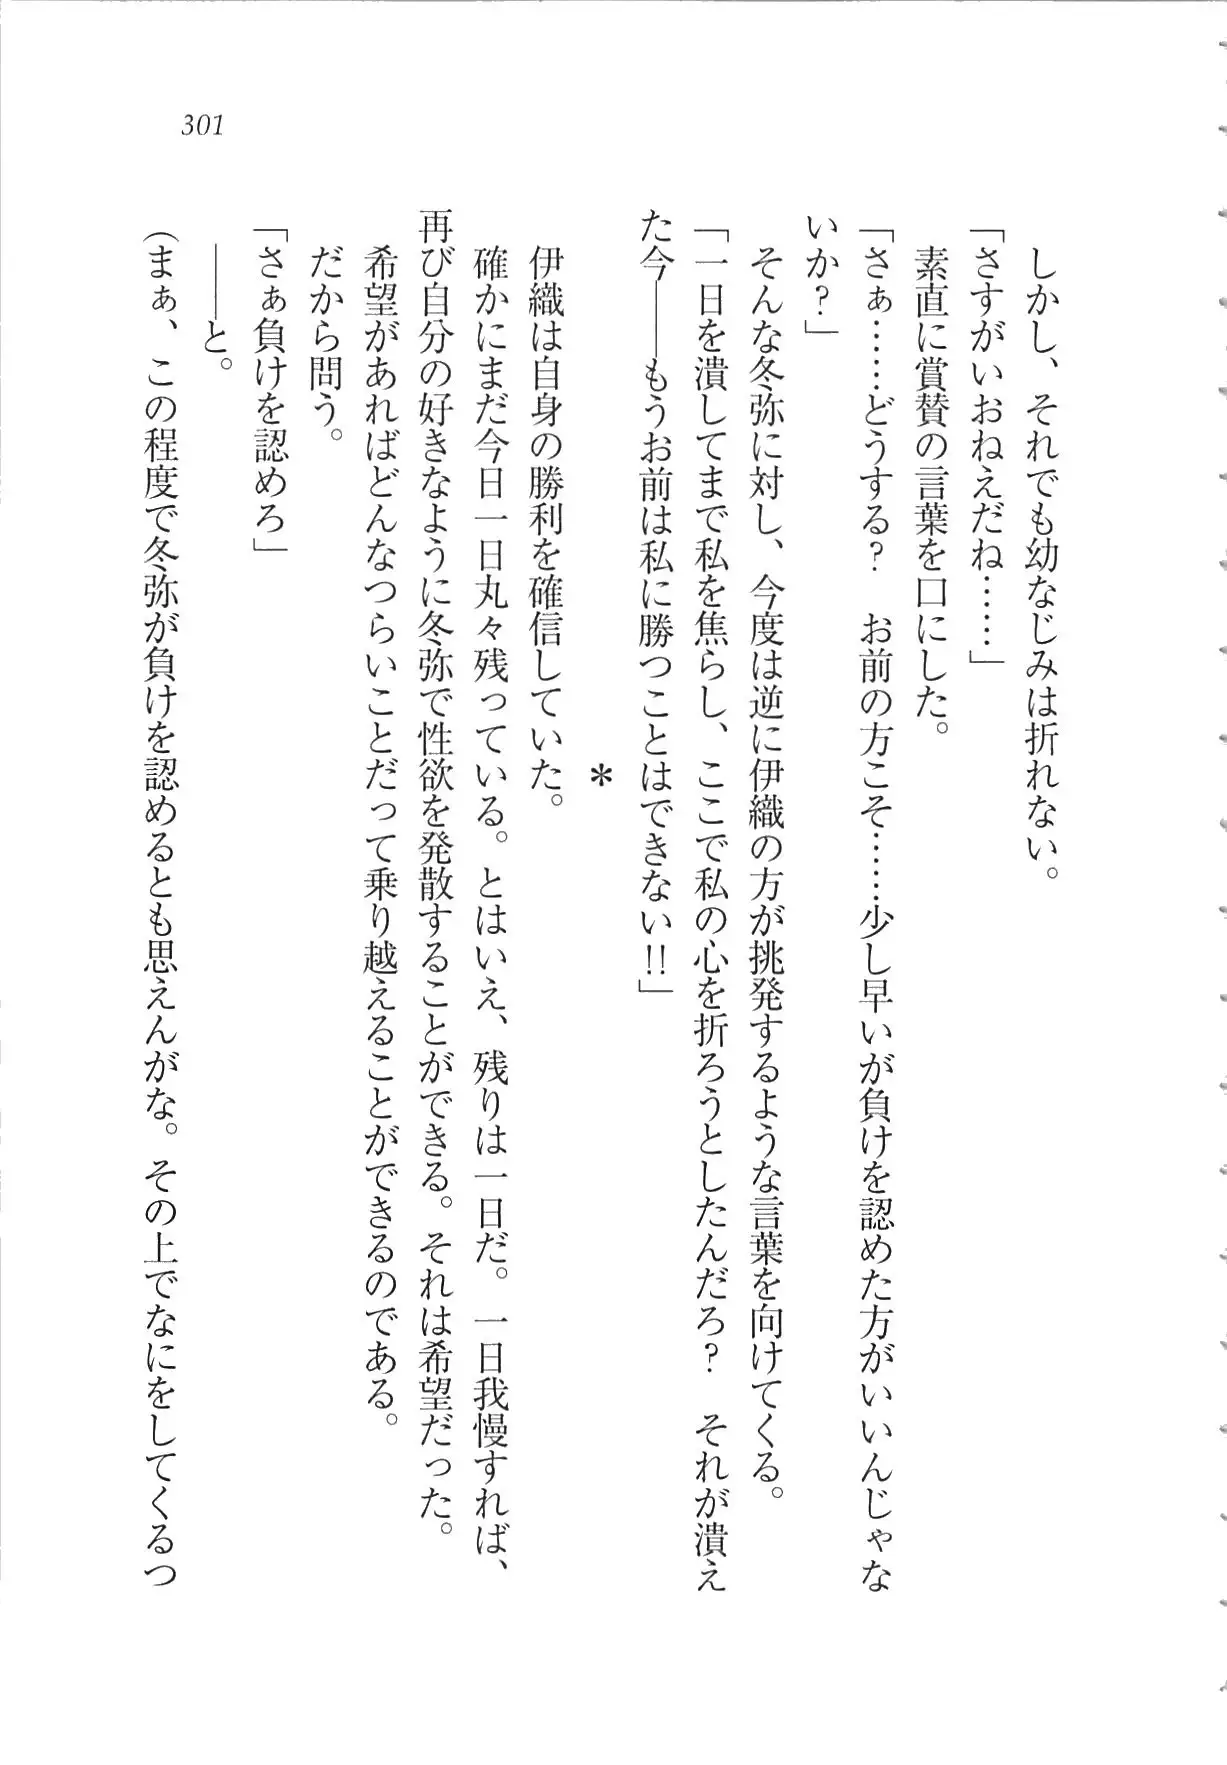 301
しかし、それでも幼なじみは折れない。
「さすがいおねえだね……」
素直に賞賛の言葉を口にした。
「さぁ……どうする？　お前の方こそ……少し早いが負けを認めた方がいいんじゃな
いか？」
そんな冬弥に対し、今度は逆に伊織の方が挑発するような言葉を向けてくる。
「一日を潰してまで私を焦らし、ここで私の心を折ろうとしたんだろ？　それが潰え
た今――もうお前は私に勝つことはできない!!」
＊
伊織は自身の勝利を確信していた。
確かにまだ今日一日丸々残っている。とはいえ、残りは一日だ。一日我慢すれば、
再び自分の好きなように冬弥で性欲を発散することができる。それは希望だった。
希望があればどんなつらいことだって乗り越えることができるのである。
だから問う。
「さぁ負けを認めろ」
――と。
（まぁ、この程度で冬弥が負けを認めるとも思えんがな。その上でなにをしてくるつ